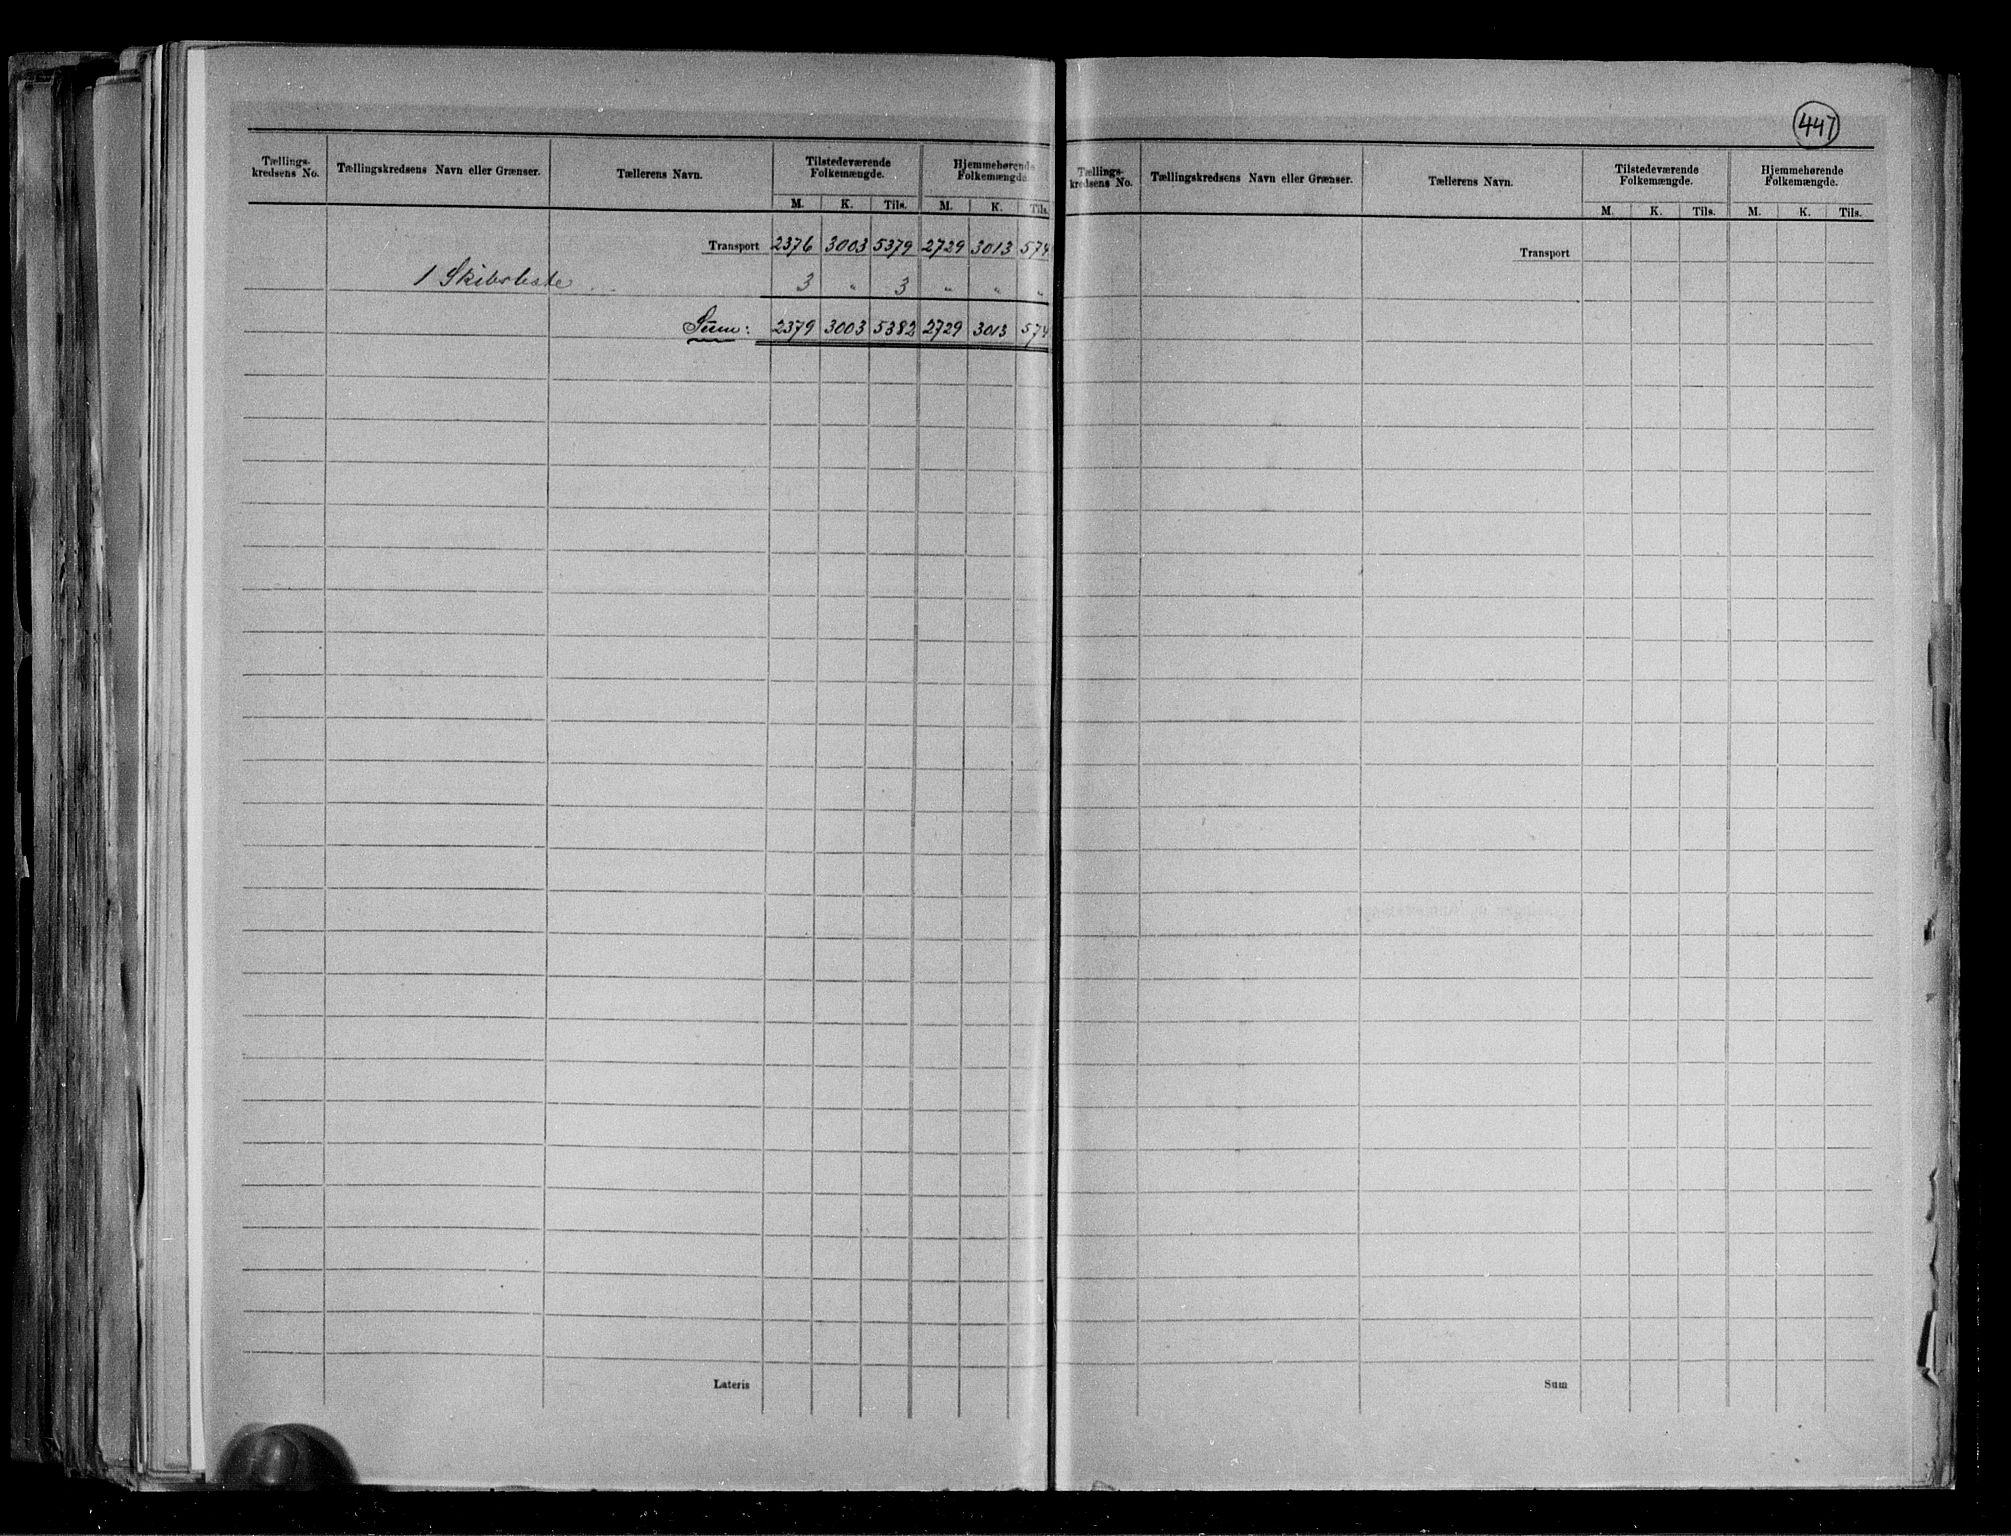 447
Tællings-kredsens No. Tællingskredsens Navn eller Grænser. Tællerens Navn. Tilstedeværende Folkemængde. Hjemmehørende Folkemængde.
M. K. Tils. M. K. Tils.
Transport 2376 3003 5379 2729 3013 574
1 Skibsliste . . 3 " 3 " " "
Sum: 2379 3003 5382 2729 3013 574
Lateris
Tællings-kredsens No. Tællingskredsens Navn eller Grænser. Tællerens Navn. Tilstedeværende Folkemængde. Hjemmehørende Folkemængde.
M. K. Tils. M. K. Tils.
Transport
Sum